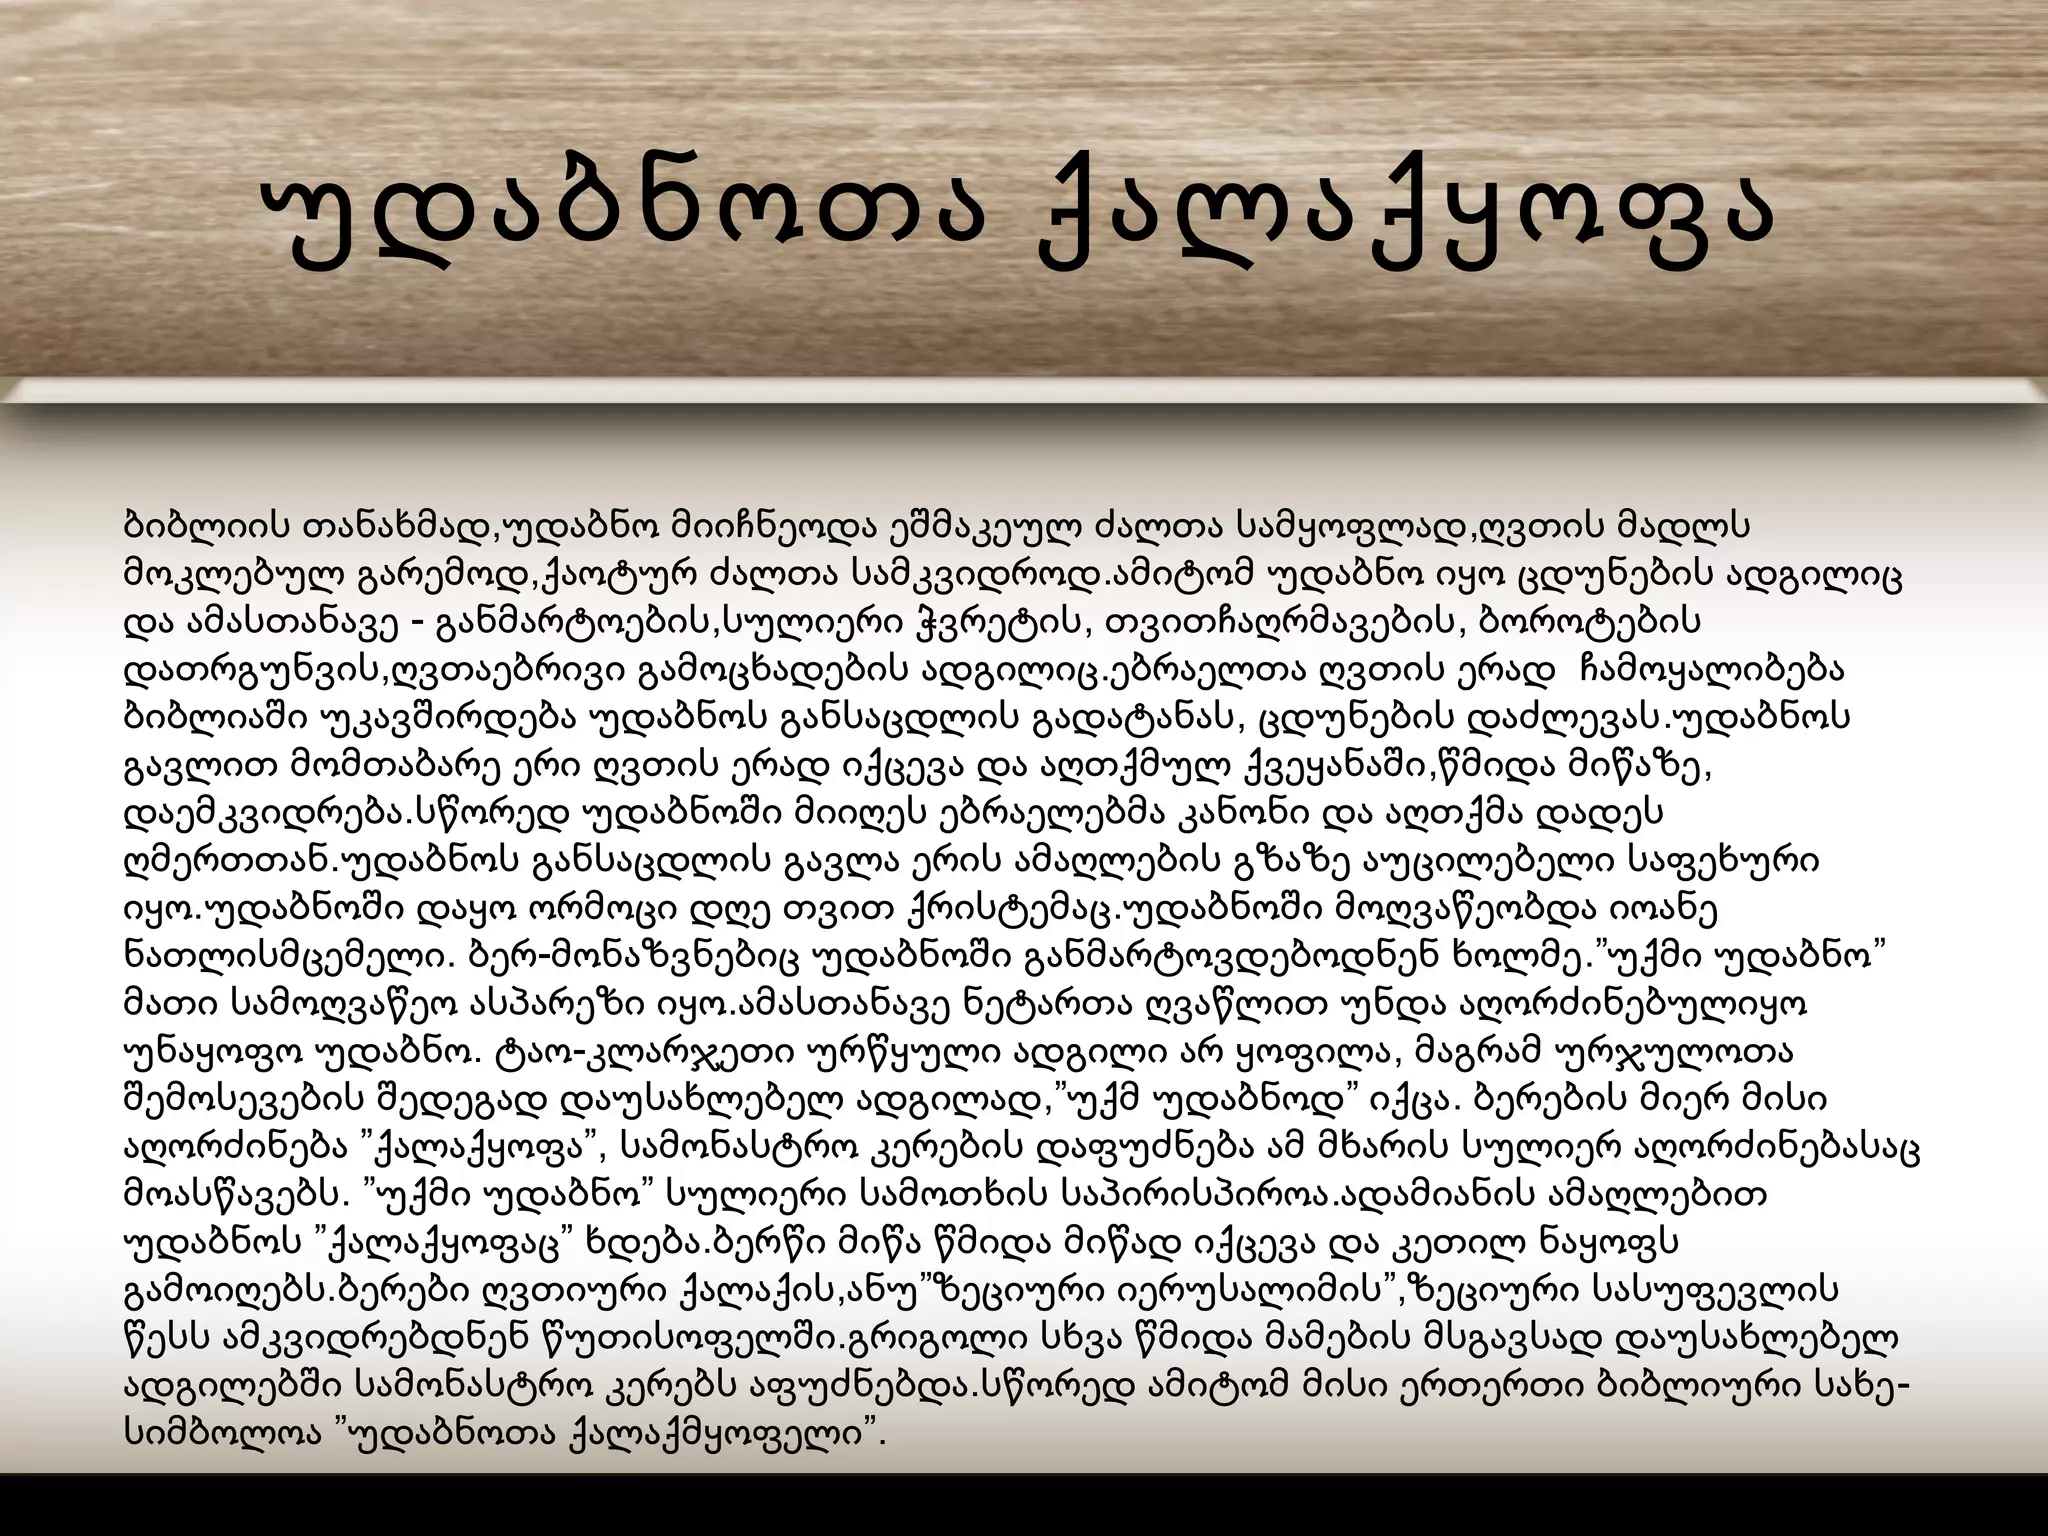 უდაბნოთა ქალაქყოფა
ბიბლიის თანახმად,უდაბნო მიიჩნეოდა ეშმაკეულ ძალთა სამყოფლად,ღვთის მადლს
მოკლებულ გარემოდ,ქაოტურ ძალთა სამკვიდროდ.ამიტომ უდაბნო იყო ცდუნების ადგილიც
და ამასთანავე - განმარტოების,სულიერი ჭვრეტის, თვითჩაღრმავების, ბოროტების
დათრგუნვის,ღვთაებრივი გამოცხადების ადგილიც.ებრაელთა ღვთის ერად  ჩამოყალიბება
ბიბლიაში უკავშირდება უდაბნოს განსაცდლის გადატანას, ცდუნების დაძლევას.უდაბნოს
გავლით მომთაბარე ერი ღვთის ერად იქცევა და აღთქმულ ქვეყანაში,წმიდა მიწაზე,
დაემკვიდრება.სწორედ უდაბნოში მიიღეს ებრაელებმა კანონი და აღთქმა დადეს
ღმერთთან.უდაბნოს განსაცდლის გავლა ერის ამაღლების გზაზე აუცილებელი საფეხური
იყო.უდაბნოში დაყო ორმოცი დღე თვით ქრისტემაც.უდაბნოში მოღვაწეობდა იოანე
ნათლისმცემელი. ბერ-მონაზვნებიც უდაბნოში განმარტოვდებოდნენ ხოლმე.”უქმი უდაბნო”
მათი სამოღვაწეო ასპარეზი იყო.ამასთანავე ნეტართა ღვაწლით უნდა აღორძინებულიყო
უნაყოფო უდაბნო. ტაო-კლარჯეთი ურწყული ადგილი არ ყოფილა, მაგრამ ურჯულოთა
შემოსევების შედეგად დაუსახლებელ ადგილად,”უქმ უდაბნოდ” იქცა. ბერების მიერ მისი
აღორძინება ”ქალაქყოფა”, სამონასტრო კერების დაფუძნება ამ მხარის სულიერ აღორძინებასაც
მოასწავებს. ”უქმი უდაბნო” სულიერი სამოთხის საპირისპიროა.ადამიანის ამაღლებით
უდაბნოს ”ქალაქყოფაც” ხდება.ბერწი მიწა წმიდა მიწად იქცევა და კეთილ ნაყოფს
გამოიღებს.ბერები ღვთიური ქალაქის,ანუ”ზეციური იერუსალიმის”,ზეციური სასუფევლის
წესს ამკვიდრებდნენ წუთისოფელში.გრიგოლი სხვა წმიდა მამების მსგავსად დაუსახლებელ
ადგილებში სამონასტრო კერებს აფუძნებდა.სწორედ ამიტომ მისი ერთერთი ბიბლიური სახე-
სიმბოლოა ”უდაბნოთა ქალაქმყოფელი”.